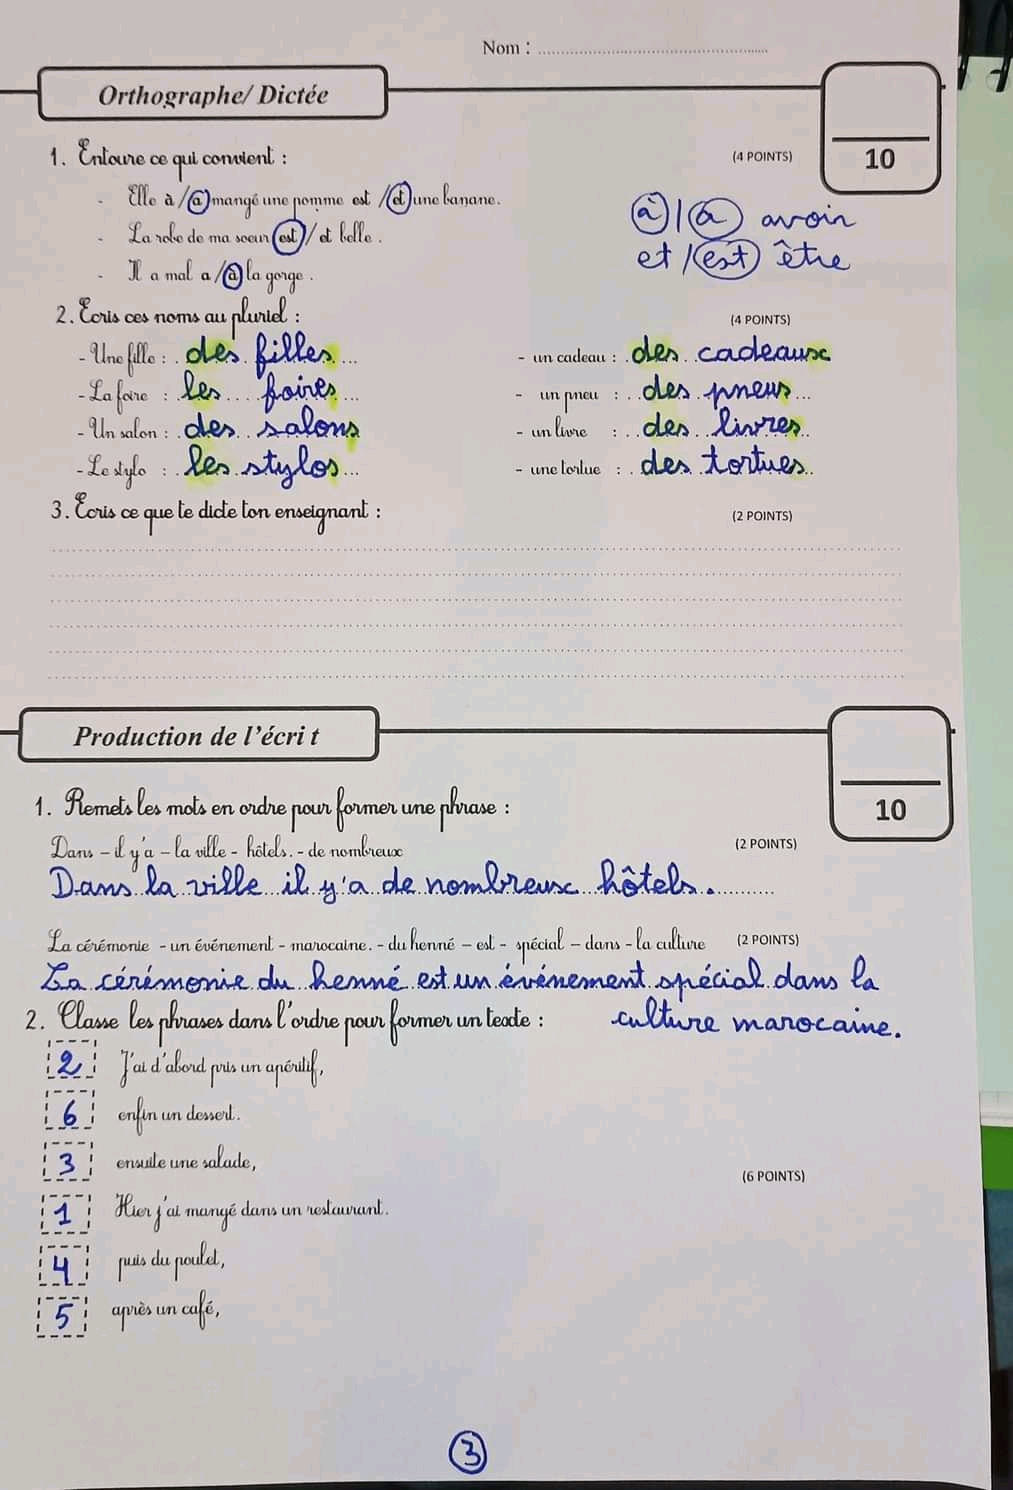 Nom : ................................................
Orthographe/ Dictée
10
1. Entoure ce qui convient :
(4 POINTS)
- Elle à / a mangé une pomme est / et une banane.
à / a avoir
- La robe de ma soeur est / et belle.
et / est être
- Il a mal a / à la gorge.
2. Ecris ces noms au pluriel :
(4 POINTS)
- Une fille : des filles
- un cadeau : des cadeaux
- La foire : les foires
- un pneu : des pneus
- Un salon : des salons
- un livre : des livres
- Le stylo : les stylos
- une tortue : des tortues
3. Ecris ce que te dicte ton enseignant :
(2 POINTS)
Production de l'écri t
10
1. Remets les mots en ordre pour former une phrase :
Dans - il y'a - la ville - hôtels. - de nombreux
(2 POINTS)
Dans la ville il y'a de nombreux hôtels.
La cérémonie - un événement - marocaine. - du henné - est - spécial - dans - la culture
(2 POINTS)
La cérémonie du henné est un événement spécial dans la
culture marocaine.
2. Classe les phrases dans l'ordre pour former un texte :
2 J'ai d'abord pris un apéritif,
6 enfin un dessert.
3 ensuite une salade,
(6 POINTS)
1 Hier j'ai mangé dans un restaurant.
4 puis du poulet,
5 après un café,
3